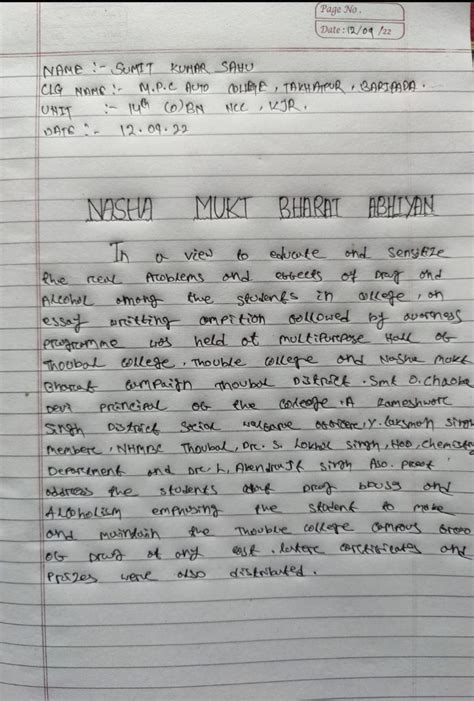 Page No.
Date: 12/09/22
NAME :- SUMIT KUMAR SAHU
CLG NAME :- M.P.C AUTO COLLEGE, TAKHATPUR, BARIPADA.
UNIT :- 14th (O) BN NCC, KJR.
DATE :- 12.09.22
NASHA MUKT BHARAT ABHIYAN
In a view to educate and sensitize
the real Problems and effects of Drug and
Alcohol among the students in college, an
essay writting compition followed by awarness
Programme was held at multipurpose Hall of
Thoubal college. Thouble college and Nasha Mukt
Bharat campaign Thoubal District. Smt O. Chaoba
Devi principal of the college. A Rameshworc
Singh District Social welfare officerc, Y. Laksman singh
memberc, NHMRC Thoubal, Drc. S. Lokhol singh, HOD, chemistry
Department and Drc. L. Abendrajt singh Aso. Proof
address the students abut Drug abuse and
Alcoholism emphusing the student to make
and maindain the Thouble college campous
of Drug at any cost. Laterc corctificates and
Prizes were also distributed.